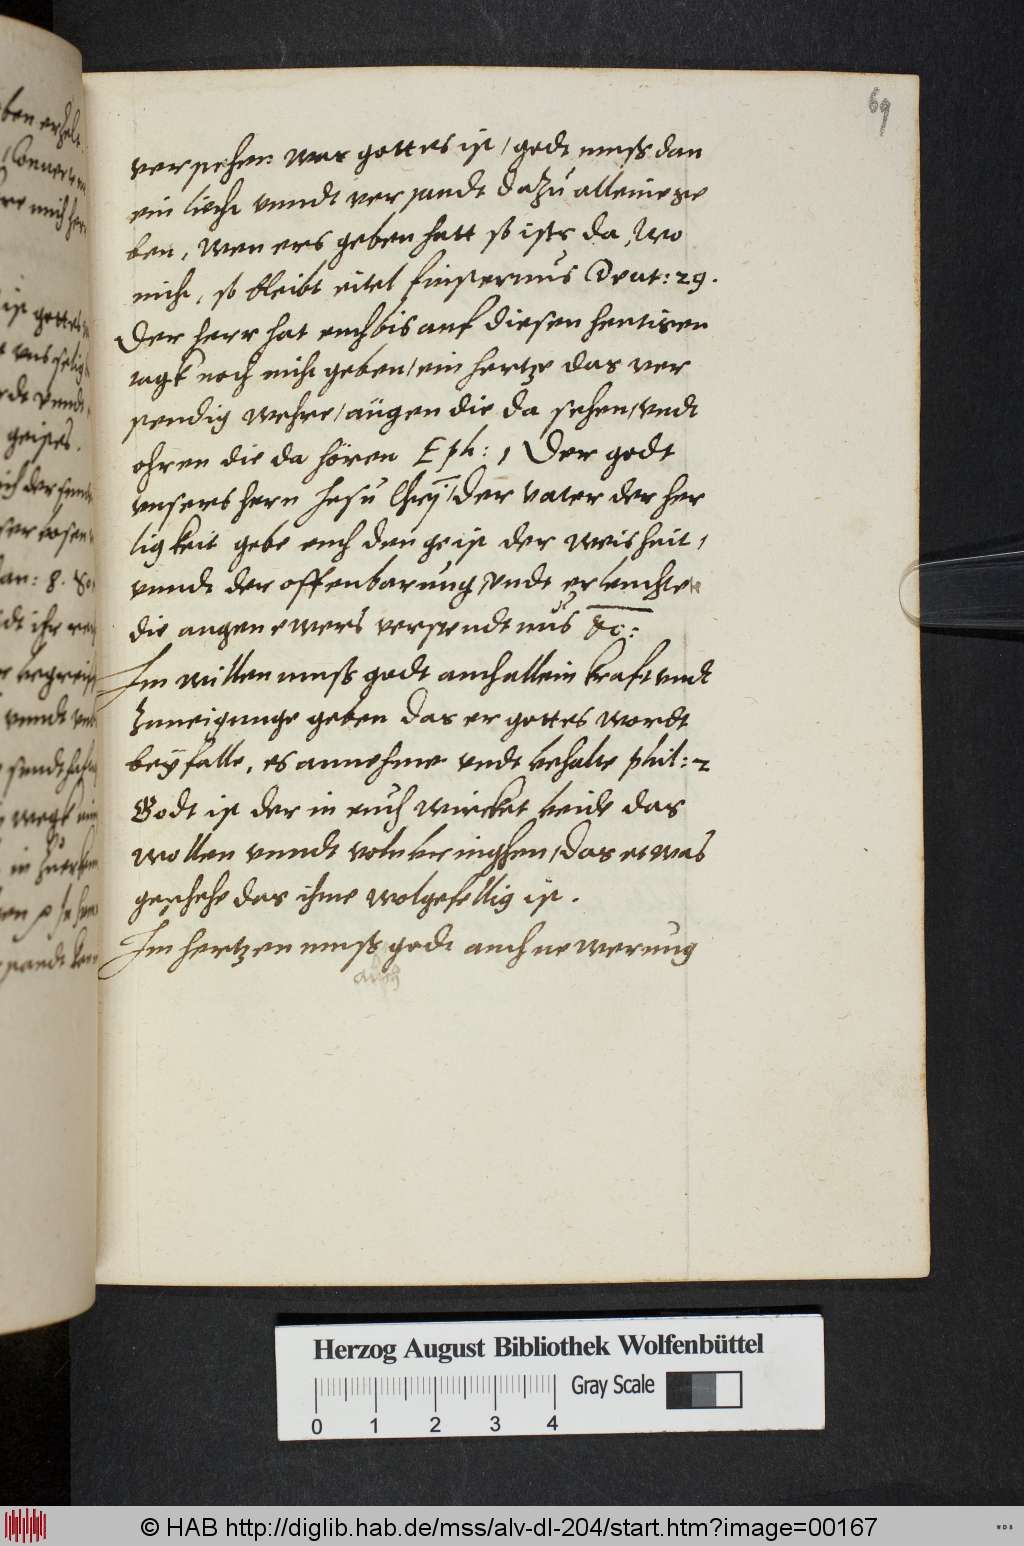 69
verstehen was gottes ist / godt muss dan
ein liecht vnndt verstandt dazu alleine ge
ben, wen ers geben hatt so ists da, wo
nicht, so bleibt eitel finsternus Deut: 29.
Der herr hat euch bis auf diesen heutigen
tagk noch nicht geben / ein hertze das ver
stendig wehre / augen die da sehen / vndt
ohren die da hören Eph: 1 Der godt
vnsers hern Jesu Chrj / der vater der her
ligkeit gebe euch den geist der weisheit,
vnndt der offenbarung, vndt erleuchte
die augen ewers verstendtnus &c:
Im willen muss godt auch allein kraft vndt
zuneigunge geben das er gottes wordt
beyfalle, es annehme vndt behalte phil: 2
Godt ist der in euch wircket beide das
wollen vnndt volnbringhen / das etwas
geschehe das ihme wolgefellig ist.
Im hertzen muss godt auch newerung
Herzog August Bibliothek Wolfenbüttel
Gray Scale
0 1 2 3 4
© HAB http://diglib.hab.de/mss/alv-dl-204/start.htm?image=00167